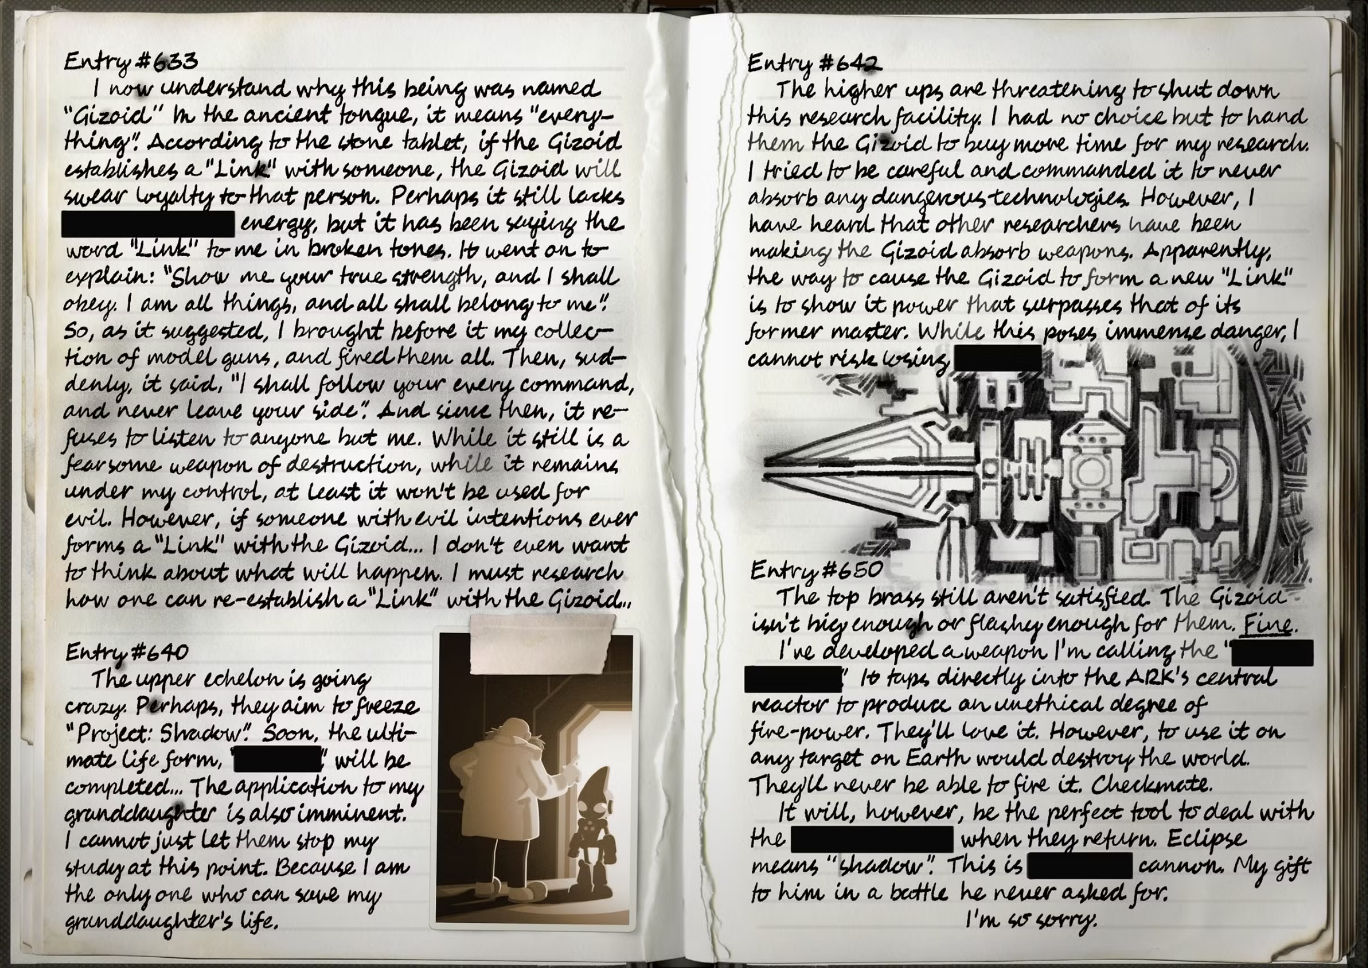 Entry #633
I now understand why this being was named
"Gizoid" In the ancient tongue, it means "every-
thing". According to the stone tablet, if the Gizoid
establishes a "Link" with someone, the Gizoid will
swear loyalty to that person. Perhaps it still lacks
energy, but it has been saying the
word "Link" to me in broken tones. It went on to
explain: "Show me your true strength, and I shall
obey. I am all things, and all shall belong to me".
So, as it suggested, I brought before it my collec-
tion of model guns, and fired them all. Then, sud-
denly, it said, "I shall follow your every command,
and never leave your side". And since then, it re-
fuses to listen to anyone but me. While it still is a
fearsome weapon of destruction, while it remains
under my control, at least it won't be used for
evil. However, if someone with evil intentions ever
forms a "Link" with the Gizoid... I don't even want
to think about what will happen. I must research
how one can re-establish a "Link" with the Gizoid...
Entry #640
The upper echelon is going
crazy. Perhaps, they aim to freeze
"Project: Shadow". Soon, the ulti-
mate life form, " " will be
completed... The application to my
granddaughter is also imminent.
I cannot just let them stop my
study at this point. Because I am
the only one who can save my
granddaughter's life.
Entry #642
The higher ups are threatening to shut down
this research facility. I had no choice but to hand
them the Gizoid to buy more time for my research.
I tried to be careful and commanded it to never
absorb any dangerous technologies. However, I
have heard that other researchers have been
making the Gizoid absorb weapons. Apparently,
the way to cause the Gizoid to form a new "Link"
is to show it power that surpasses that of its
former master. While this poses immense danger, I
cannot risk losing
Entry #650
The top brass still aren't satisfied. The Gizoid
isn't big enough or flashy enough for them. Fine.
I've developed a weapon I'm calling the "
" It taps directly into the ARK's central
reactor to produce an unethical degree of
fire-power. They'll love it. However, to use it on
any target on Earth would destroy the world.
They'll never be able to fire it. Checkmate.
It will, however, be the perfect tool to deal with
the when they return. Eclipse
means "shadow". This is cannon. My gift
to him in a battle he never asked for.
I'm so sorry.